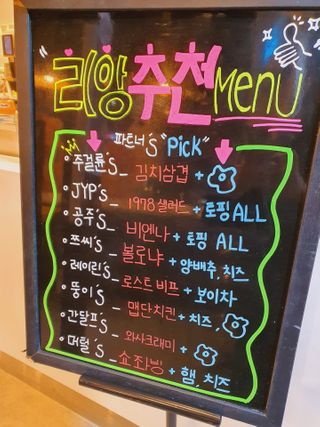 "리앙추천 MENU
파트너's "Pick"
• 주걸륜's – 김치삼겹 +
• JYP's – 1978샐러드 + 토핑 ALL
• 공주's – 비엔나 + 토핑 ALL
• 쯔씨's – 볼도냐 + 양배추, 치즈
• 레이린's – 로스트비프 + 보이차
• 뚱이's – 맵단치킨 + 치즈,
• 간달프's – 와사크래미 +
• 머털's – 쇼좌빙 + 햄, 치즈